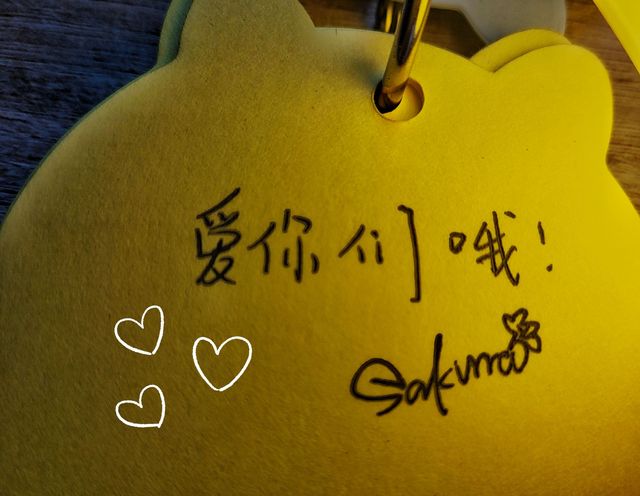 爱你们哦!
Sakura